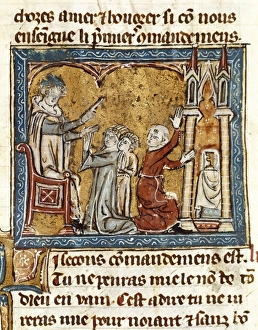 choses amer & honorer si cõ nous
enseigne li pͥmier cõmandemens.
I secons cõmandemens est.
Tu ne penras mie le nõ de tõ
dieu en vain. Cest a dire tu ne iu
reras mie pour noiant & sanz bõ